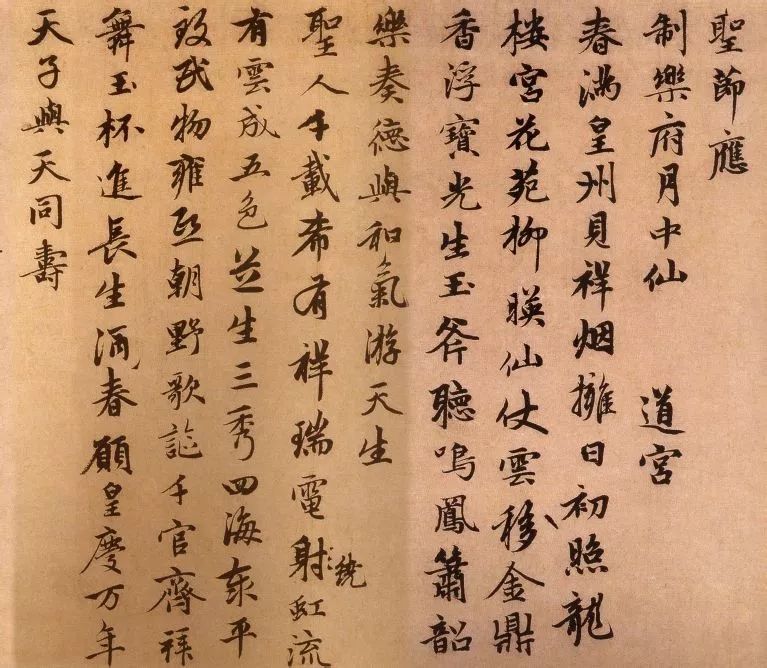 聖節應
制樂府月中仙 道宮
春滿皇州見祥烟擁日初照龍
楼宮花苑柳暎仙仗雲移金鼎
香浮寶光生玉斧聽鳴鳳簫韶
樂奏德與和氣游天生
聖人千載希有祥瑞電射繞虹流
有雲成五色芝生三秀四海泰平
致民物雍熙朝野歌謳千官齊拜
舞玉杯進長生酒春願皇慶万年
天子與天同壽